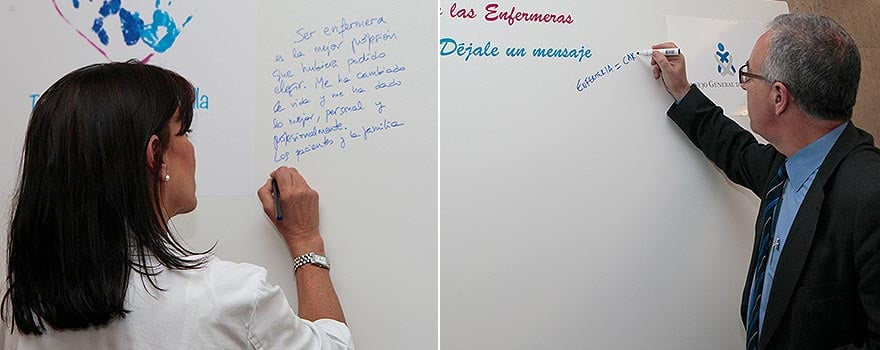 Ser enfermera
es la mejor profesión
que hubiera podido
elegir. Me ha cambiado
la vida y me ha dado
lo mejor, personal y
profesionalmente.
Los pacientes y la familia
las Enfermeras
Déjale un mensaje
ENFERMERIA = CAR
GENERAL